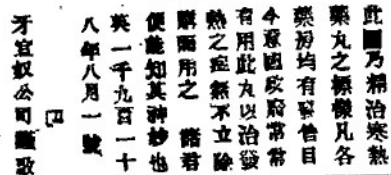 此圖乃精治寒熱
藥丸之標樣凡各
藥房均有發售目
今意國政府常常
有用此丸以治發
熱之症無不立除
購而用之 諸君
便能知其神妙也
英一千九百一十
八年八月一號
牙宜奴公司謹啟